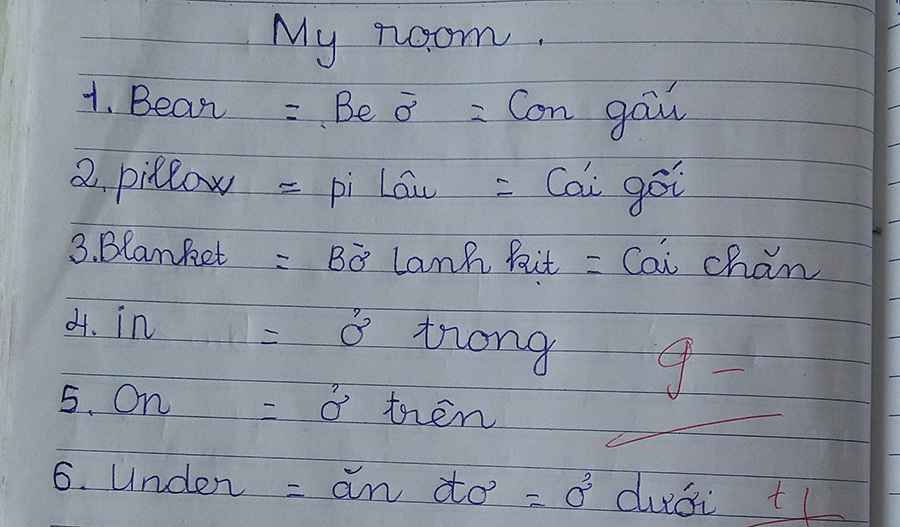 My room.
1. Bear = Be ờ = Con gấu
2. pillow = pi Lâu = Cái gối
3. Blanket = Bờ Lanh kịt = Cái chăn
4. in = ở trong
9 -
5. On = ở trên
6. Under = ăn đơ = ở dưới